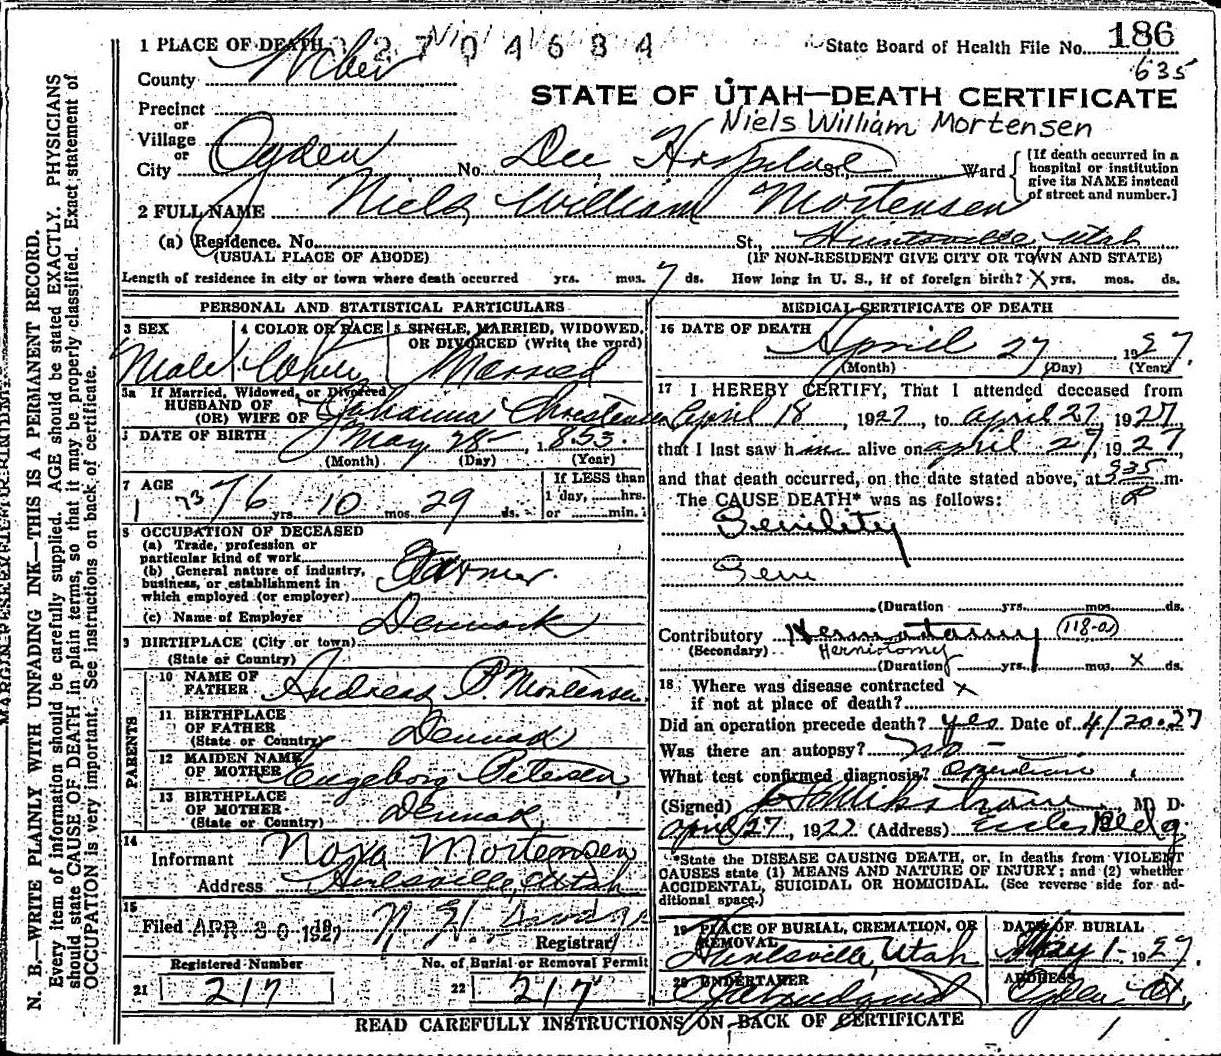 1 PLACE OF DEATH 2704634 State Board of Health File No. 186
County Weber 635
STATE OF UTAH—DEATH CERTIFICATE
Precinct
or
Village
or
Niels William Mortensen
City Ogden No. Dee Hospital St., Ward [If death occurred in a hospital or institution give its NAME instead of street and number.]
2 FULL NAME Niels William Mortensen
(a) Residence. No. St., Huntsville, Utah
(USUAL PLACE OF ABODE) (IF NON-RESIDENT GIVE CITY OR TOWN AND STATE)
Length of residence in city or town where death occurred yrs. mos. 7 ds. How long in U. S., if of foreign birth? X yrs. mos. ds.
PERSONAL AND STATISTICAL PARTICULARS
3 SEX 4 COLOR OR RACE 5 SINGLE, MARRIED, WIDOWED, OR DIVORCED (Write the word)
Male White Married
3a If Married, Widowed, or Divorced
HUSBAND OF
(OR) WIFE OF Johanna Christensen
DATE OF BIRTH May 28 1853
(Month) (Day) (Year)
7 AGE If LESS than
1 day, hrs.
73 76 yrs. 10 mos. 29 ds. or min.
8 OCCUPATION OF DECEASED
(a) Trade, profession or
particular kind of work
(b) General nature of industry,
business, or establishment in
which employed (or employer)
Farmer.
(c) Name of Employer
Denmark
9 BIRTHPLACE (City or town)
(State or Country)
PARENTS
10 NAME OF
FATHER Andreas P. Mortensen
11 BIRTHPLACE
OF FATHER
(State or Country) Denmark
12 MAIDEN NAME
OF MOTHER Engeborg Petersen
13 BIRTHPLACE
OF MOTHER
(State or Country) Denmark
14
Informant Nora Mortensen
Address Huntsville, Utah
15
Filed APR 30 1927
Registrar
Registered Number No. of Burial or Removal Permit
21 217 22 217
MEDICAL CERTIFICATE OF DEATH
16 DATE OF DEATH
April 27, 1927.
(Month) (Day) (Year)
17 I HEREBY CERTIFY, That I attended deceased from
April 18, 1927, to April 27, 1927
that I last saw him alive on April 27, 1927,
and that death occurred, on the date stated above, at 935 P m.
The CAUSE DEATH* was as follows:
Senility
(Duration yrs. mos. ds.
Contributory (118-a)
(Secondary) Herniotomy
(Duration yrs. mos. X ds.
18 Where was disease contracted X
if not at place of death?
Did an operation precede death? yes Date of 4/20-27
Was there an autopsy? no -
What test confirmed diagnosis? Operation
(Signed) M. D.
April 27, 1927 (Address) Eccles Bldg.
*State the DISEASE CAUSING DEATH, or, in deaths from VIOLENT
CAUSES state (1) MEANS AND NATURE OF INJURY; and (2) whether
ACCIDENTAL, SUICIDAL OR HOMICIDAL. (See reverse side for ad-
ditional space.)
19 PLACE OF BURIAL, CREMATION, OR REMOVAL DATE OF BURIAL
Huntsville, Utah May 1- 1927.
20 UNDERTAKER ADDRESS
Ogden Ut.
READ CAREFULLY INSTRUCTIONS ON BACK OF CERTIFICATE
N. B.—WRITE PLAINLY WITH UNFADING INK—THIS IS A PERMANENT RECORD.
Every item of information should be carefully supplied. AGE should be stated EXACTLY. PHYSICIANS
should state CAUSE OF DEATH in plain terms, so that it may be properly classified. Exact statement of
OCCUPATION is very important. See instructions on back of certificate.